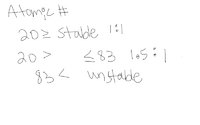 Atomic #
20 ≥ stable 1:1
20 > ≤83 1.5:1
83 < unstable